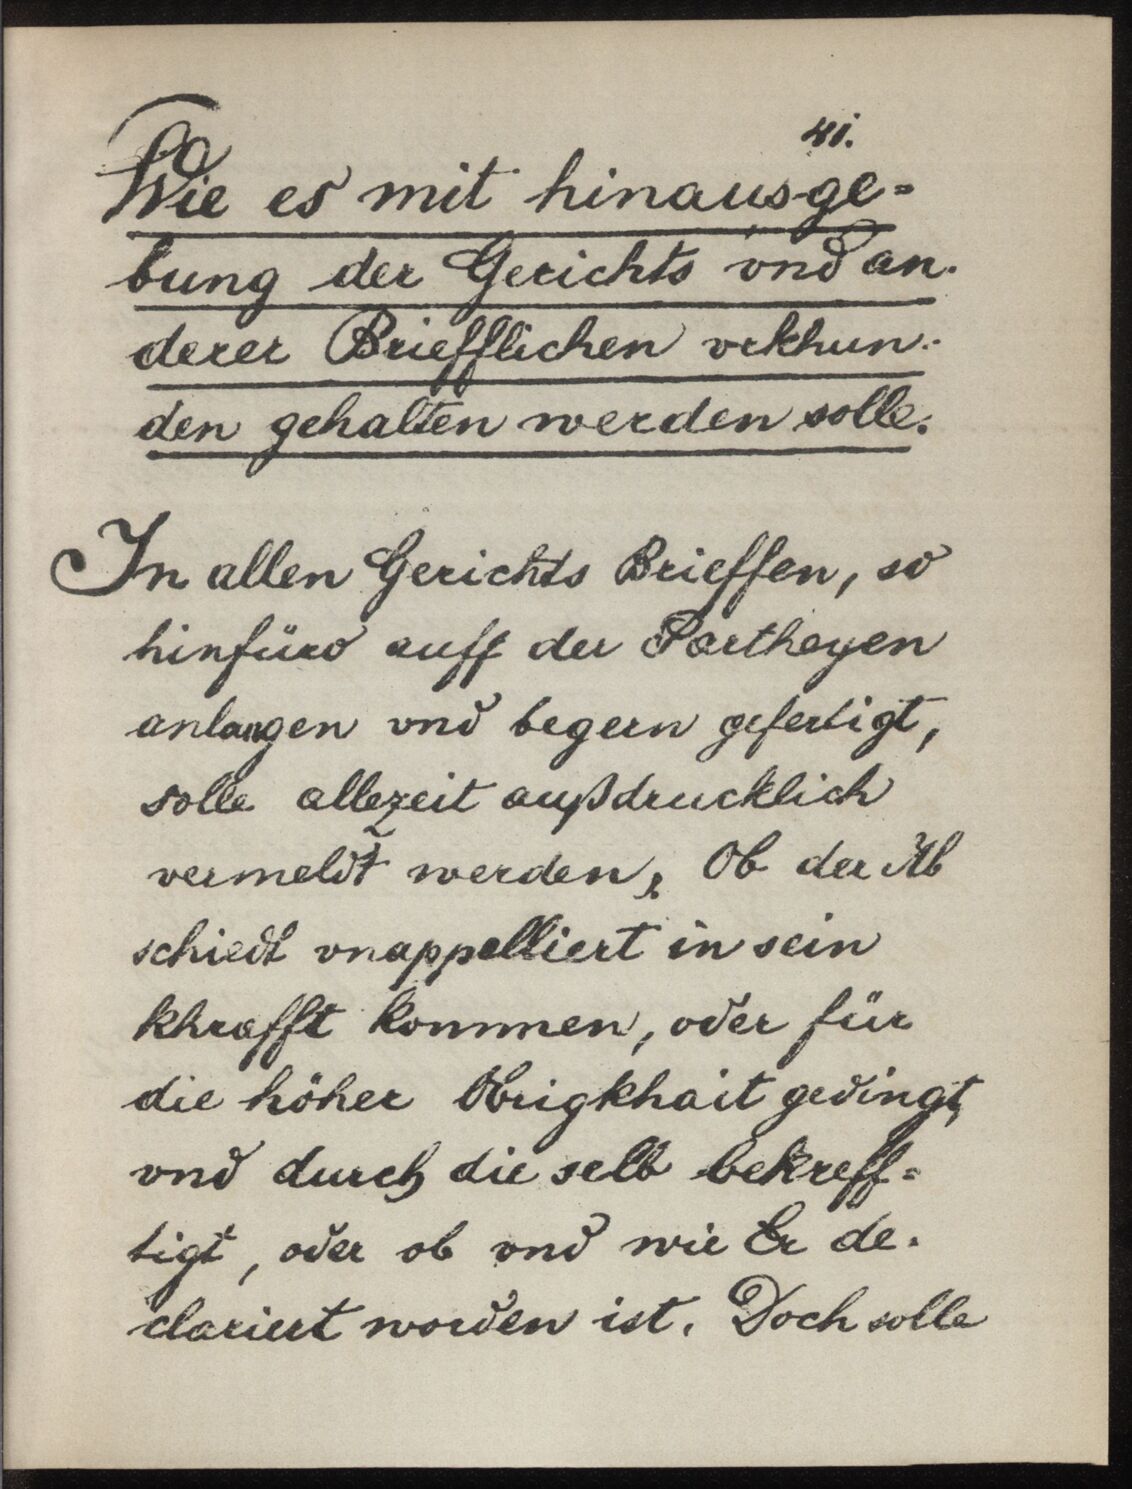 41.
Wie es mit hinausge=
bung der Gerichts vnd an-
derer Briefflichen vrkhun-
den gehalten werden solle.
In allen Gerichts Brieffen, so
hinfüro auff der Partheyen
anlangen vnd begern gefertigt,
solle allezeit außdrucklich
vermeldt werden, Ob der Ab
schiedt vnappelliert in sein
khrafft kommen, oder für
die höher Obrigkhait gedingt,
vnd durch die selb bekreff=
tigt, oder ob vnd wie Er de-
clariert worden ist. Doch solle